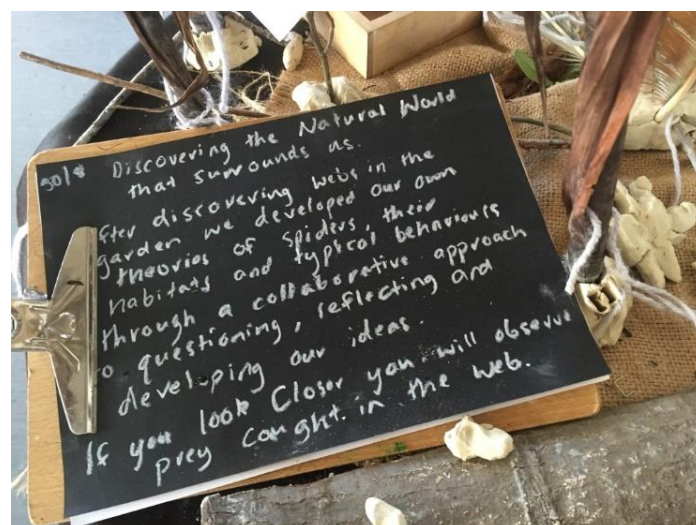 Discovering the Natural World
that surrounds us.
fter discovering webs in the
garden we developed our own
theories of spiders, their
habitats and typical behaviours
through a collaborative approach
o questioning, reflecting and
developing our ideas.
If you look Closer you will observe
prey caught in the web.